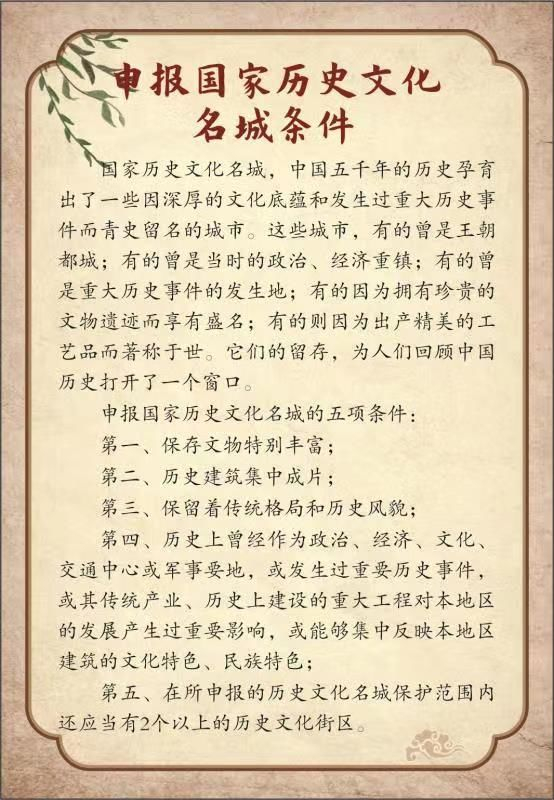 申报国家历史文化
名城条件
国家历史文化名城，中国五千年的历史孕育
出了一些因深厚的文化底蕴和发生过重大历史事
件而青史留名的城市。这些城市，有的曾是王朝
都城；有的曾是当时的政治、经济重镇；有的曾
是重大历史事件的发生地；有的因为拥有珍贵的
文物遗迹而享有盛名；有的则因为出产精美的工
艺品而著称于世。它们的留存，为人们回顾中国
历史打开了一个窗口。
申报国家历史文化名城的五项条件：
第一、保存文物特别丰富；
第二、历史建筑集中成片；
第三、保留着传统格局和历史风貌；
第四、历史上曾经作为政治、经济、文化、
交通中心或军事要地，或发生过重要历史事件，
或其传统产业、历史上建设的重大工程对本地区
的发展产生过重要影响，或能够集中反映本地区
建筑的文化特色、民族特色；
第五、在所申报的历史文化名城保护范围内
还应当有2个以上的历史文化街区。